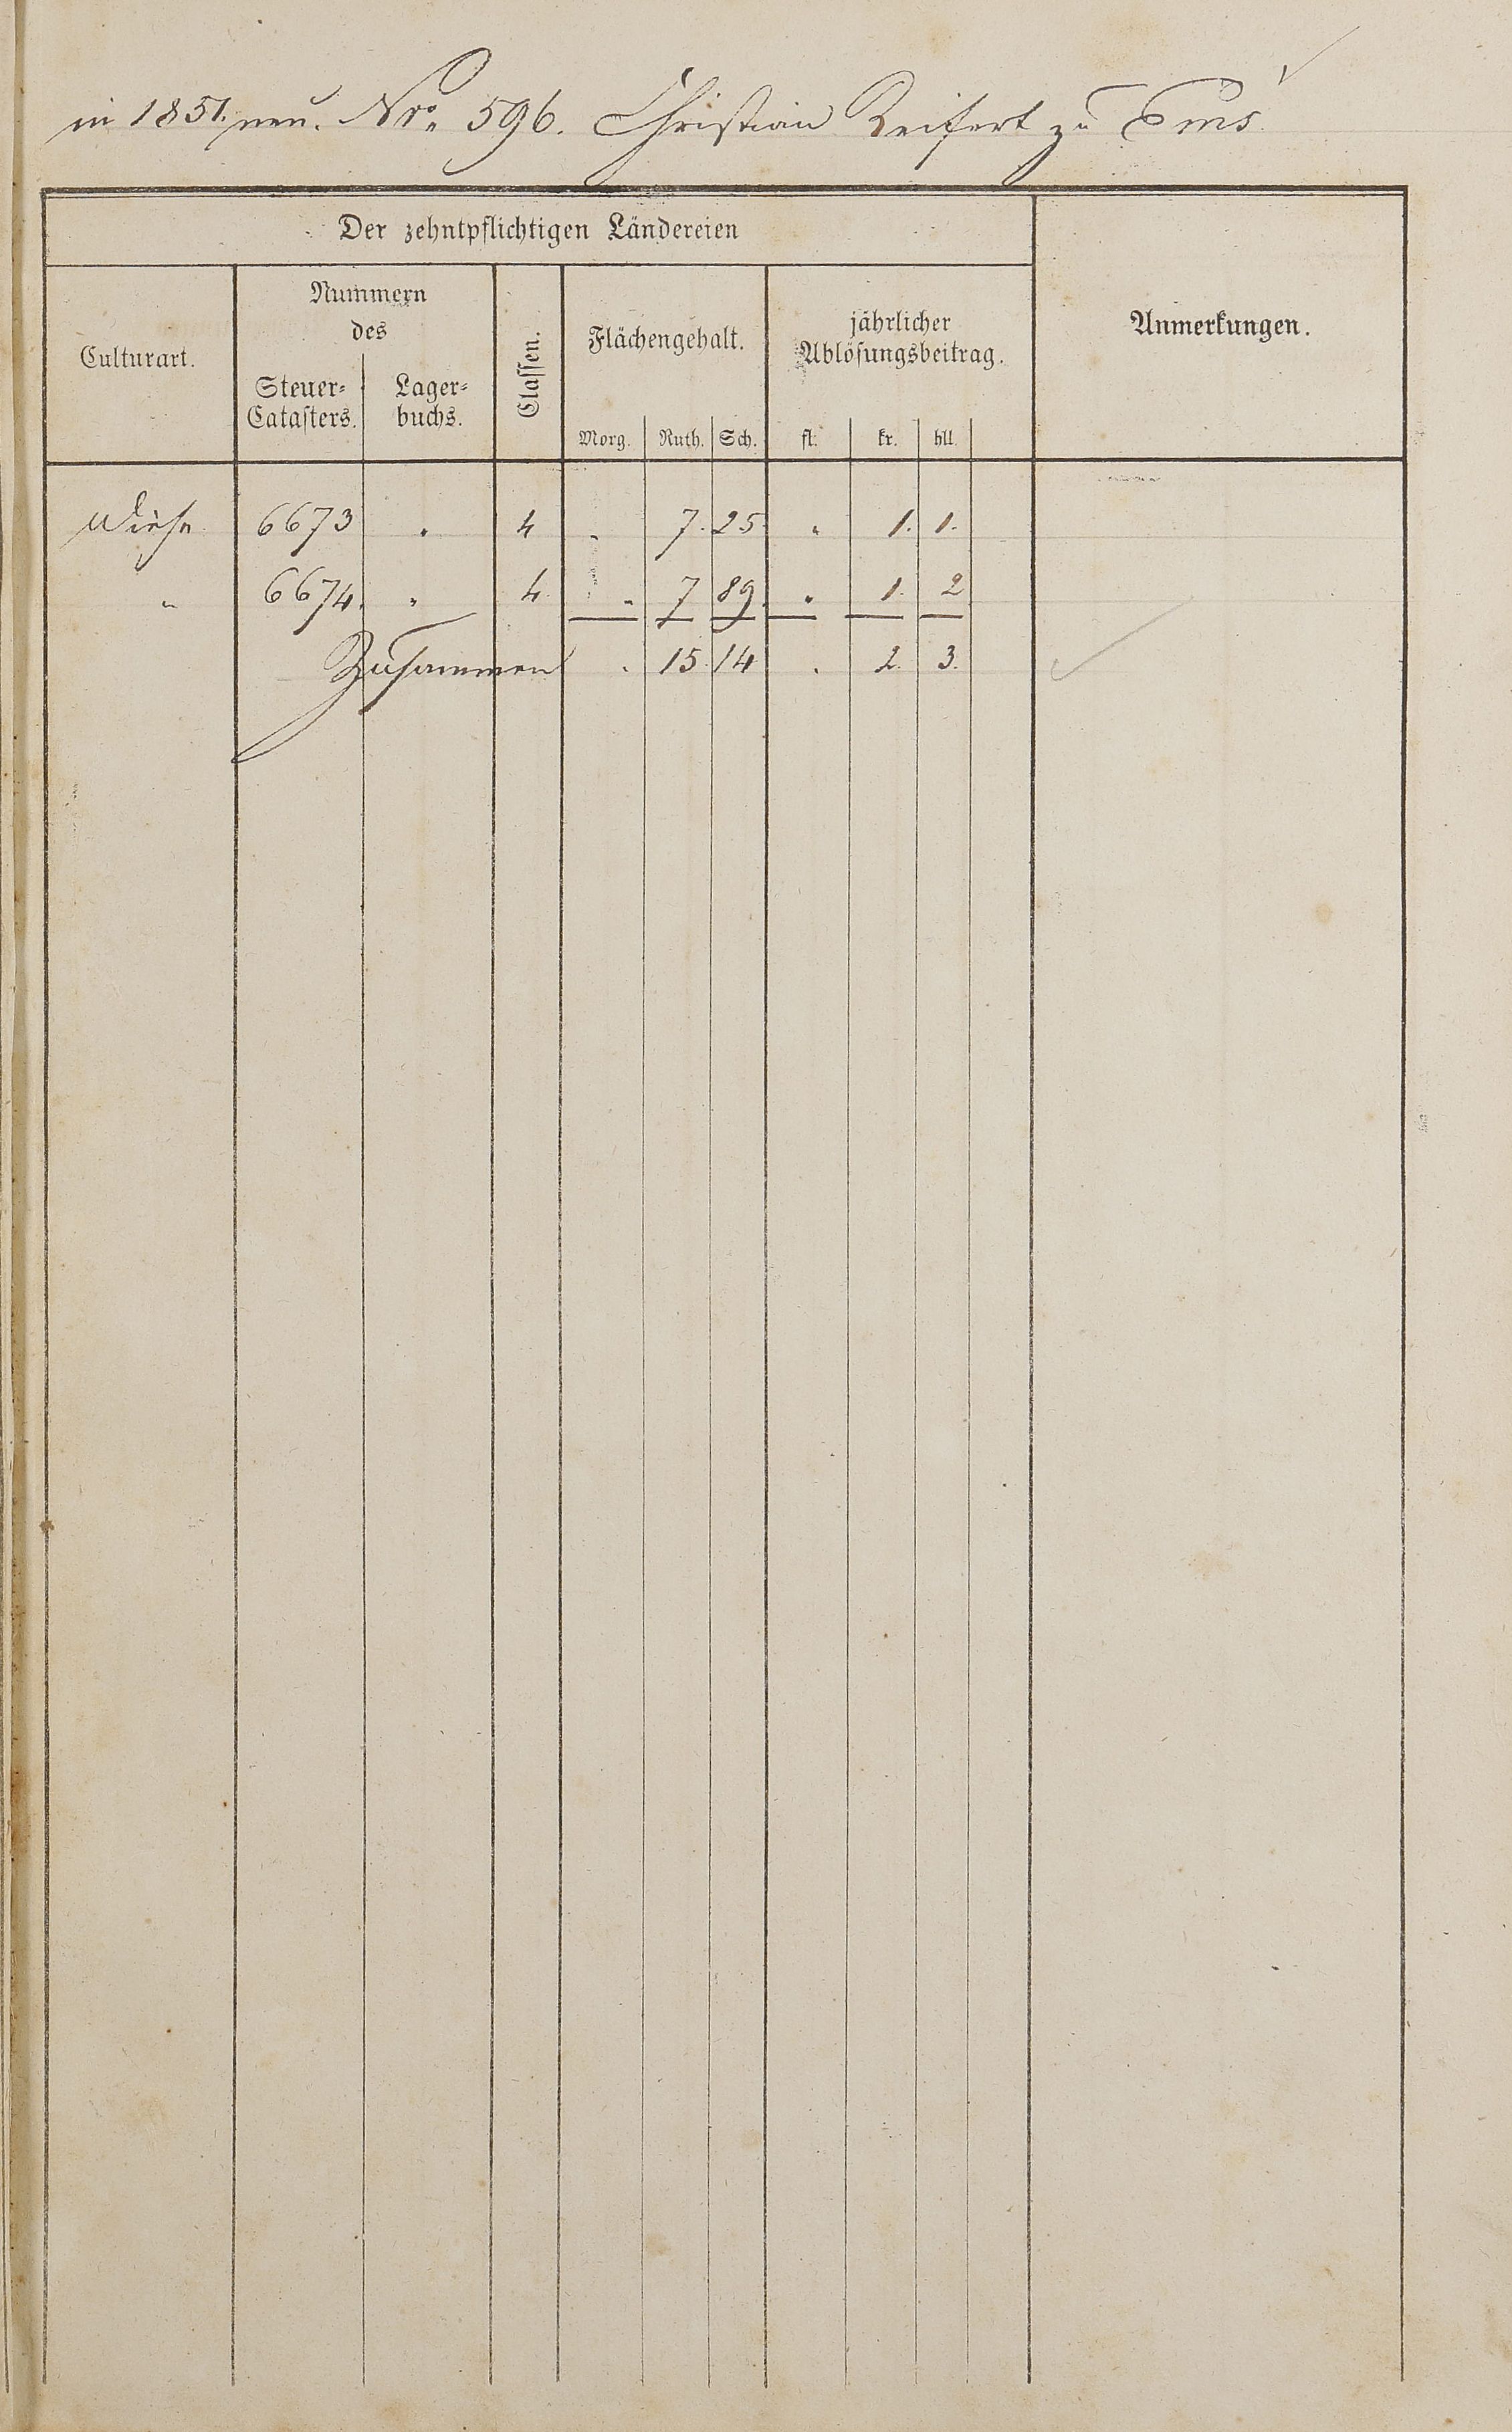 in 1851. neu. Nro. 596. Christian Reifert zu Ems
Der zehntpflichtigen Ländereien
Culturart.
Nummern
des
Steuer-
Catasters.
Lager-
buchs.
Classen.
Flächengehalt.
Morg. Ruth. Sch.
jährlicher
Ablösungsbeitrag.
fl. kr. hll.
Anmerkungen.
Wiese 6673 " 4 " 7. 25 " 1. 1.
" 6674. " 4. " 7 89. " 1. 2
Zusammen . 15. 14 . 2. 3.